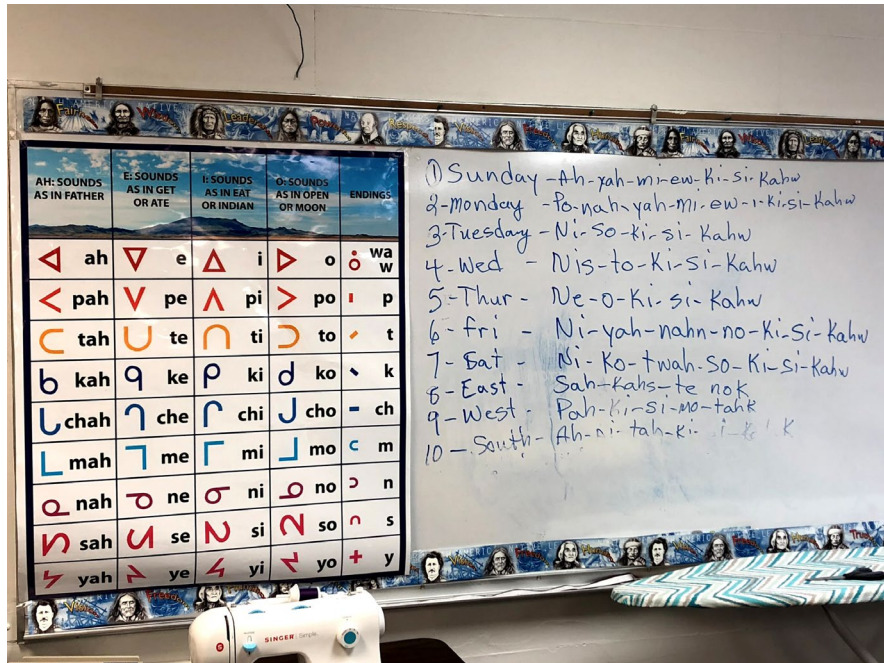 AH: SOUNDS AS IN FATHER
E: SOUNDS AS IN GET OR ATE
I: SOUNDS AS IN EAT OR INDIAN
O: SOUNDS AS IN OPEN OR MOON
ENDINGS
ᐊ ah ᐁ e ᐃ i ᐅ o ᐧ wa ᐤ w
ᐸ pah ᐯ pe ᐱ pi ᐳ po ᑊ p
ᑕ tah ᑌ te ᑎ ti ᑐ to ᐟ t
ᑲ kah ᑫ ke ᑭ ki ᑯ ko ᐠ k
ᒐ chah ᒉ che ᒋ chi ᒍ cho ᐨ ch
ᒪ mah ᒣ me ᒥ mi ᒧ mo ᒼ m
ᓇ nah ᓀ ne ᓂ ni ᓄ no ᐣ n
ᓴ sah ᓭ se ᓯ si ᓱ so ᐢ s
ᔭ yah ᔦ ye ᔨ yi ᔪ yo + y
① Sunday - Ah-yah-mi-ew-Ki-si-Kahw
2-monday - Po-nah-yah-mi-ew-i-ki-si-Kahw
3-Tuesday - Ni-So-Ki-si-Kahw
4-Wed - Nis-to-Ki-si-Kahw
5-Thur - Ne-o-Ki-si-Kahw
6-Fri - Ni-yah-nahn-no-Ki-Si-Kahw
7-Sat - Ni-Ko-twah-So-Ki-si-Kahw
8-East - Sah-Kahs-te nok
9-West - Pah-Ki-si-mo-tahk
10-South - Ah-ni-tah-ki
SINGER Simple